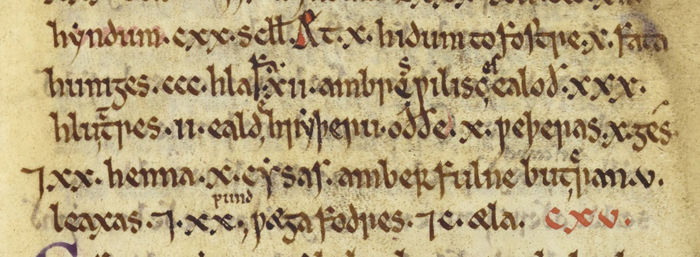 hyndum · cxx · scll̃ · Æt · x · hidum to fostre · x · fata
huniges · ccc · hlafa · xii · ambres ƿilisces ealoð · xxx ·
hluttres · ii · ealde hryþeru · oððe · x · ƿeþeras · x · ges
⁊ xx · henna · x · cysas · amber fulne buteran · v ·
leaxas · ⁊ · xx · pund ƿæga fodres · ⁊ c · æla · cxv ·